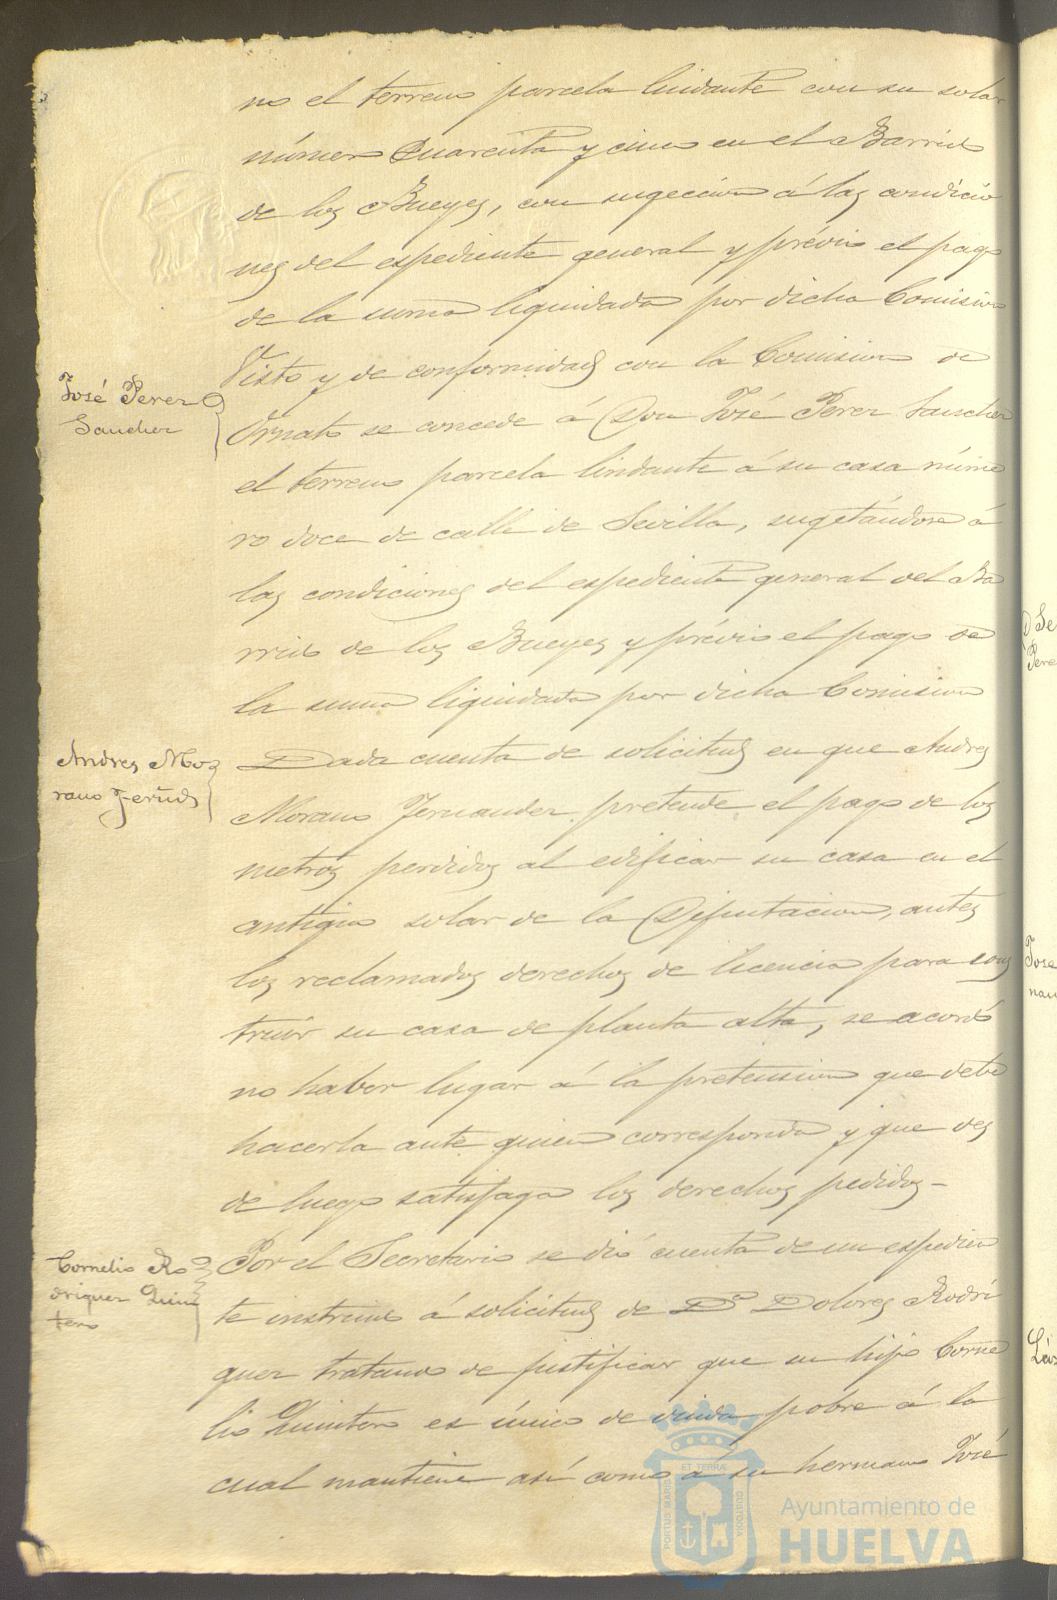 no el terreno parcela lindante con su solar
número Cuarenta y cinco en el Barrio
de los Bueyes, con sugeccion á las condicio
nes del espediente general y prévio el pago
de la suma liquidada por dicha Comision
Visto y de conformidad con la Comision de
José Perez
Sanchez
Ornato se concede á Don José Perez Sanchez
el terreno parcela lindante á su casa núme
ro doce de calle de Sevilla, sugetándose á
las condiciones del espediente general del Ba
rrio de los Bueyes y prévio el pago de
la suma liquidada por dicha Comision
Andres Mo
rano Fernz
Dada cuenta de solicitud en que Andres
Morano Fernandez pretende el pago de los
metros perdidos al edificar su casa en el
antiguo solar de la Diputacion, antes
los reclamados derechos de licencia para cons
truir su casa de planta alta, se acordó
no haber lugar á la pretension que debe
hacerla ante quien corresponda y que des
de luego satisfaga los derechos pedidos-
Cornelio Ro
driguez Quin
tero
Por el Secretario se dió cuenta de un espedien
te instruido á solicitud de Dª Dolores Rodrí
guez tratando de justificar que su hijo Corne
lio Quintero es único de viuda pobre á la
cual mantiene así como á su hermano José
D Se
Pere
Jose
nan
PORTUS MARIS ET TERRAE CUSTODIA
Ayuntamiento de
HUELVA